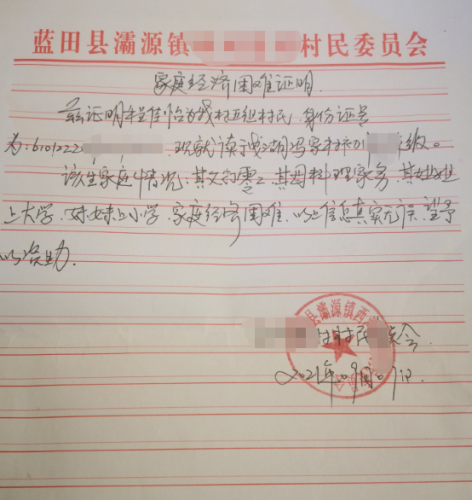 蓝田县灞源镇 村民委员会
家庭经济困难证明
兹证明程佳怡为我村五组村民,身份证号
为:6101222 现就读于 冯家村 级。
该生家庭情况:其父打零工,其母料理家务,其姐姐
上大学,妹妹上小学,家庭经济困难,以上信息真实无误,望予
以资助。
县灞源镇西
村村民委会
2021年09月01日